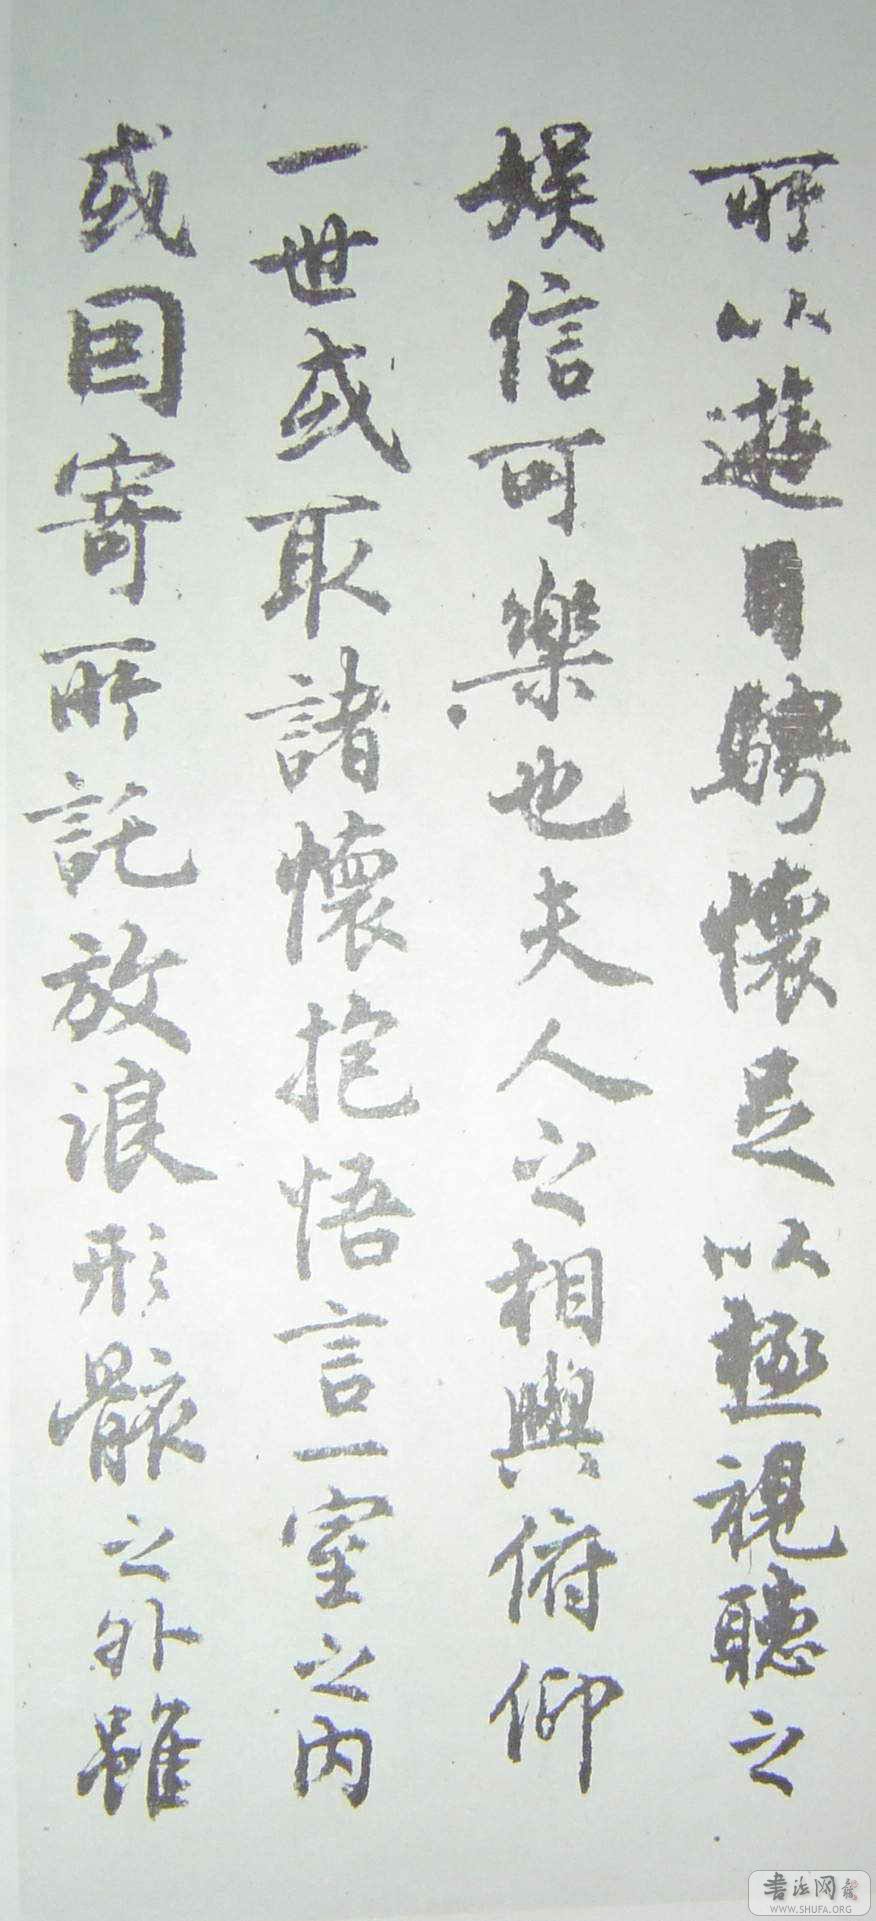 所以遊目騁懷足以極視聽之
娛信可樂也夫人之相與俯仰
一世或取諸懷抱悟言一室之內
或因寄所託放浪形骸之外雖
書法网
WWW.SHUFA.ORG